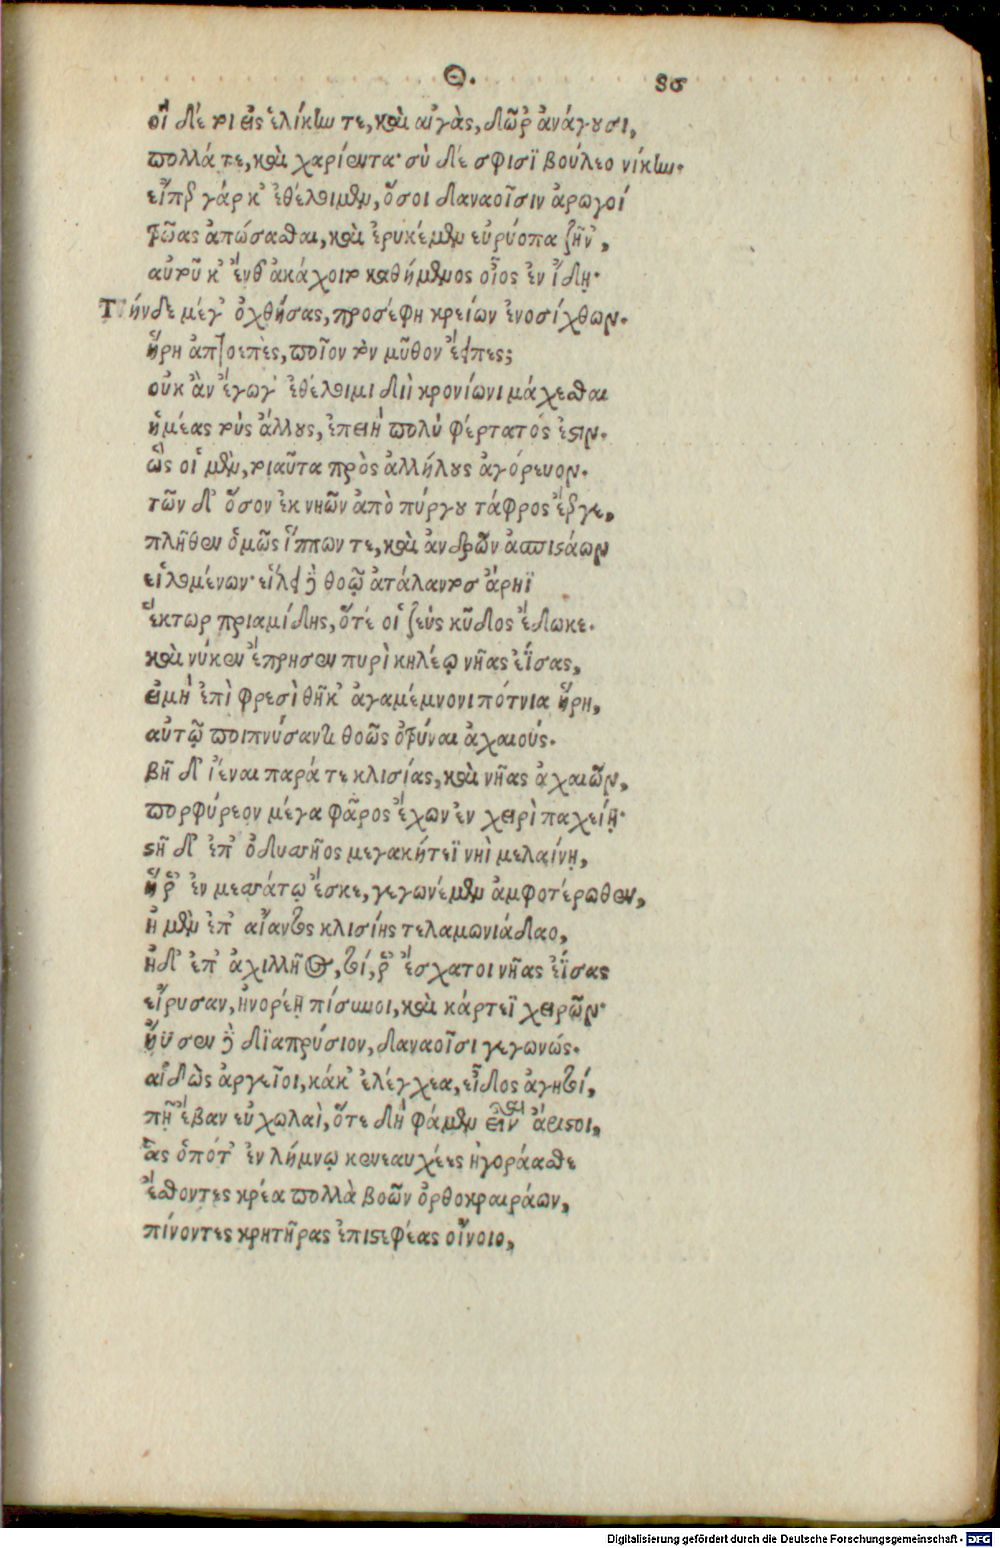 Θ. 86
οἵ δέ τοι εἰς ἑλίκην τε, καὶ αἰγὰς, δῶρ' ἀνάγουσι,
πολλά τε, καὶ χαρίεντα· σὺ δέ σφισϊ βούλεο νίκην.
εἴπερ γάρ κ' ἐθέλοιμεν, ὅσοι δαναοῖσιν ἀρωγοί
τρῶας ἀπώσασθαι, καὶ ἐρυκέμεν εὐρύοπα ζῆν',
αὐτοῦ κ' ἔνθ' ἀκάχοιτο καθήμενος οἶος ἐν ἴδῃ.
Τὴν δὲ μέγ' ὀχθήσας, προσέφη κρείων ἐνοσίχθων.
ἥρη ἁπτοεπὲς, ποῖον τὸν μῦθον ἔειπες;
οὐκ ἂν ἔγωγ' ἐθέλοιμι διῒ κρονίωνι μάχεσθαι
ἡμέας τοὺς ἄλλους, ἐπειὴ πολὺ φέρτατός ἐστιν.
ὣς οἱ μὲν, τοιαῦτα πρὸς ἀλλήλους ἀγόρευον.
τῶν δ' ὅσον ἐκ νηῶν ἀπὸ πύργου τάφρος ἔεργε,
πλῆθεν ὁμῶς ἵππων τε, καὶ ἀνδρῶν ἀσπιστάων
εἰλομένων· εἴλει δὲ θοῷ ἀτάλαντος ἄρηϊ
ἕκτωρ πριαμίδης, ὅτέ οἱ ζεὺς κῦδος ἔδωκε.
καὶ νύκεν ἔπρησεν πυρὶ κηλέῳ νῆας ἐΐσας,
εἰ μὴ ἐπὶ φρεσὶ θῆκ' ἀγαμέμνονι πότνια ἥρη,
αὐτῷ ποιπνύσαντι θοῶς ὀτρύναι ἀχαιούς.
βῆ δ' ἰέναι παρά τε κλισίας, καὶ νῆας ἀχαιῶν,
πορφύρεον μέγα φᾶρος ἔχων ἐν χειρὶ παχείῃ·
στῆ δ' ἐπ' ὀδυσσῆος μεγακήτεϊ νηῒ μελαίνῃ,
ἥ ῥ' ἐν μεσσάτῳ ἔσκε, γεγωνέμεν ἀμφοτέρωθεν,
ἠ μὲν ἐπ' αἴαντος κλισίης τελαμωνιάδαο,
ἠδ' ἐπ' ἀχιλλῆος, τοί, ῥ' ἔσχατοι νῆας ἐΐσας
εἴρυσαν, ἠνορέῃ πίσυνοι, καὶ κάρτεϊ χειρῶν·
ἤϋσεν δὲ διαπρύσιον, δαναοῖσι γεγωνώς.
αἰδὼς ἀργεῖοι, κάκ' ἐλέγχεα, εἶδος ἀγητοί,
πῇ ἔβαν εὐχωλαὶ, ὅτε δὴ φάμεν εἶναι ἄριστοι,
ἃς ὁπότ' ἐν λήμνῳ κενεαυχέες ἠγοράασθε
ἔσθοντες κρέα πολλὰ βοῶν ὀρθοκραιράων,
πίνοντες κρητῆρας ἐπιστεφέας οἴνοιο,
Digitalisierung gefördert durch die Deutsche Forschungsgemeinschaft - DFG